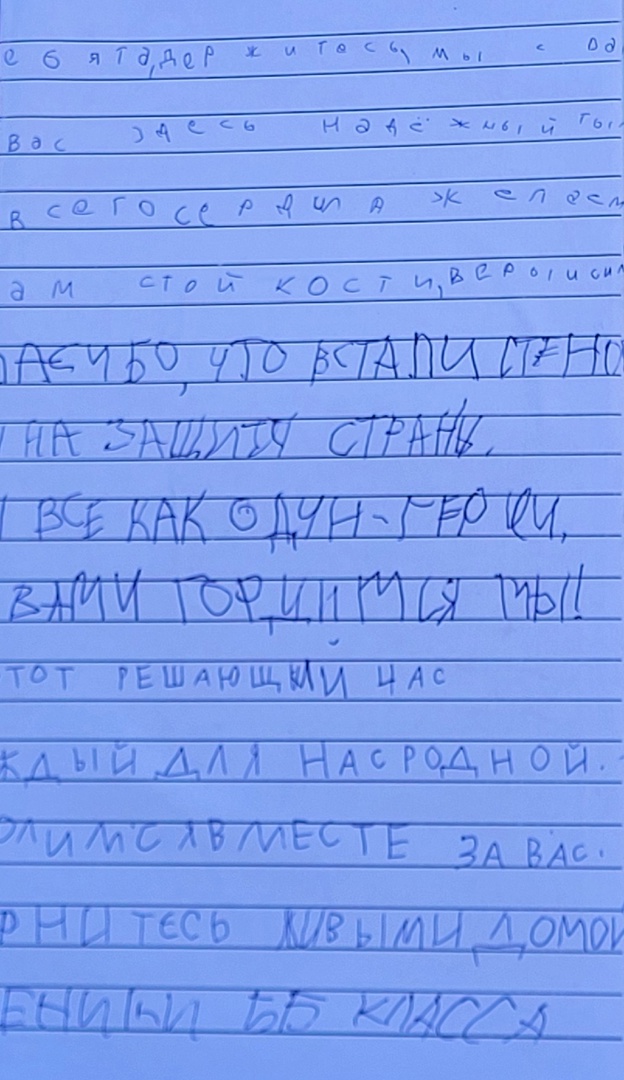 ебята, держитесь, мы с ва
вас здесь надёжный ты
всего сердца желаем
ам стойкости, веры и си
пасибо, что встали стено
НА ЗАЩИТУ СТРАНЫ.
ВСЕ КАК ОДИН - ГЕРОИ,
ВАМИ ГОРДИМСЯ МЫ!
ТОТ РЕШАЮЩИЙ ЧАС
ЖДЫЙ ДЛЯ НАС РОДНОЙ.
ОЛИМСЯ ВМЕСТЕ ЗА ВАС.
РНИТЕСЬ ЖИВЫМИ ДОМОЙ
ЕНИКИ 5Б КЛАССА